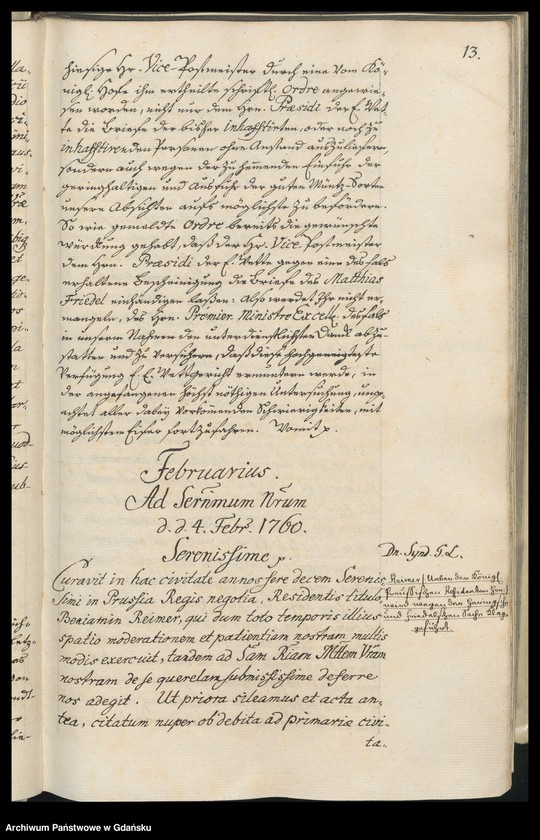 13.
hiesige Hr. Vice-Postmeister durch eine vom Kö-
nigl. Hofe ihm ertheilte schriftl. Ordre angewie-
sen worden, nicht nur dem Hrn. Præsidi der E. Wet-
te die Briefe der bisher inhafftirten, oder noch zu
inhafftirenden Personen ohne Anstand auszuliefern,
sondern auch wegen der zu hemmenden Einfuhr der
geringhaltigen und Ausfuhr der guten Müntz-Sorten
unsere Absichten aufs möglichste zu befördern.
So wie gemeldte Ordre bereits die gewünschte
würckung gehabt, daß der Hr. Vice Postmeister
dem Hrn. Præsidi der E. Wette gegen eine desfals
erhaltene Bescheinigung die Briefe des Matthias
Friedel einhändigen laßen: Also werdet Ihr nicht er-
mangeln, des Hrn. Premier Ministre Excell. desfals
in unserm Nahmen den unterdienstlichsten Danck abzu-
statten und zu versichern, daß diese hochgeneigteste
Verfügung E. E. Wettgericht ermuntern werde, in
der angefangenen höchst nöthigen Untersuchung, unge-
achtet aller dabey vorkommenden Schwierigkeiten, mit
möglichstem Eifer fortzufahren. Womit p.
Februarius.
Ad Serñmum Nrum
d. d. 4. Febr. 1760.
Serenissime p.
Dn. Synd. G. L.
Curavit in hac civitate annos fere decem Serenis-
simi in Prussia Regis negotia, Residentis titulo,
Beniamin Reimer, qui dum toto temporis illius
spatio moderationem et patientiam nostram multis
modis exercuit, tandem ad Sam Riam Mttem Vram
nostram de se querelam submississime deferre
nos adegit. Ut priora sileamus et acta an-
tea, citatum nuper ob debita ad primariæ civi-
ta-
Ueber den Königl.
Preussischen Residenten
Reimer
und
geführt.
Archiwum Państwowe w Gdańsku